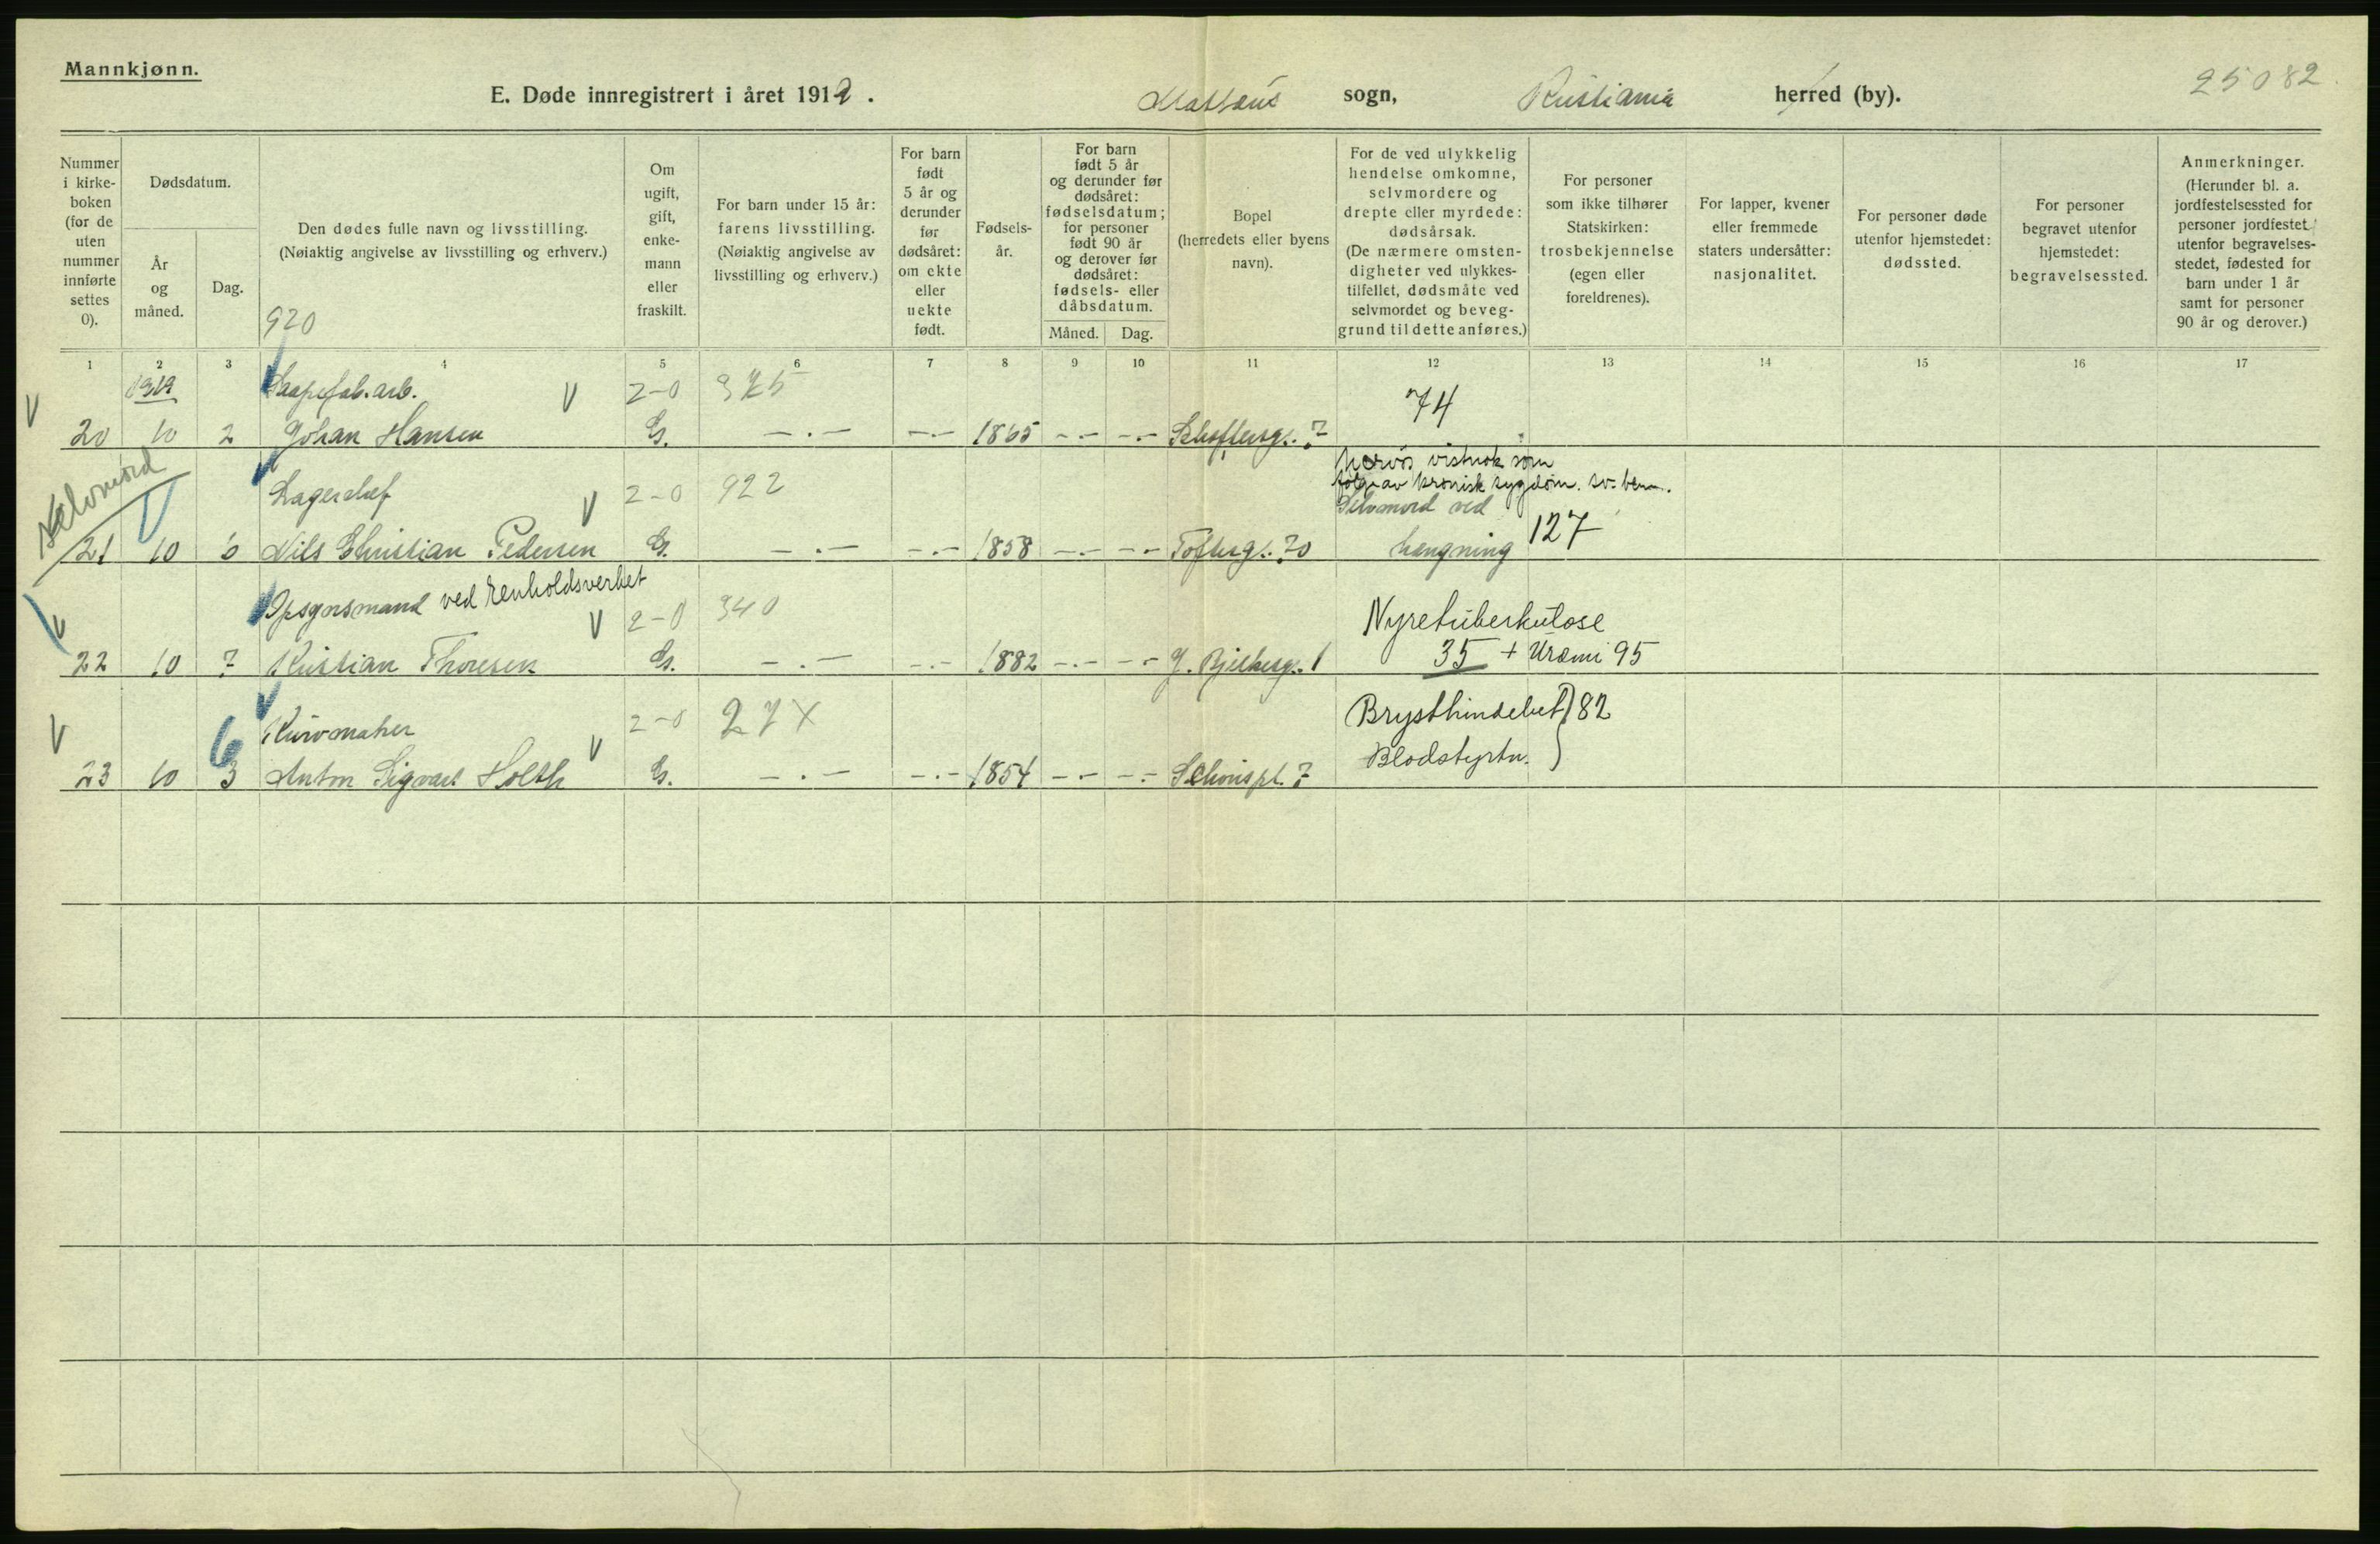 Mannkjønn.
E. Døde innregistrert i året 1919.
Mattæus sogn, Kristiania herred (by).
25082
Nummer i kirke-boken (for de uten nummer innførte settes 0).
Dødsdatum.
År og måned.
Dag.
Den dødes fulle navn og livsstilling.
(Nøiaktig angivelse av livsstilling og erhverv.)
920
Om ugift, gift, enke-mann eller fraskilt.
For barn under 15 år: farens livsstilling.
(Nøiaktig angivelse av livsstilling og erhverv.)
For barn født 5 år og derunder før dødsåret: om ekte eller uekte født.
Fødsels-år.
For barn født 5 år og derunder før dødsåret: fødselsdatum; for personer født 90 år og derover før dødsåret: fødsels- eller dåbsdatum.
Måned.
Dag.
Bopel
(herredets eller byens navn).
For de ved ulykkelig hendelse omkomne, selvmordere og drepte eller myrdede: dødsårsak.
(De nærmere omsten-digheter ved ulykkes-tilfellet, dødsmåte ved selvmordet og beveg-grund til dette anføres.)
For personer som ikke tilhører Statskirken: trosbekjennelse (egen eller foreldrenes).
For lapper, kvener eller fremmede staters undersåtter: nasjonalitet.
For personer døde utenfor hjemstedet: dødssted.
For personer begravet utenfor hjemstedet: begravelsessted.
Anmerkninger.
(Herunder bl. a. jordfestelsessted for personer jordfestet utenfor begravelses-stedet, fødested for barn under 1 år samt for personer 90 år og derover.)
1 2 3 4 5 6 7 8 9 10 11 12 13 14 15 16 17
1919 Saapefab.arb. V 2-0 375 74
V 20 10 2 Johan Hansen G. -.- -.- 1865 -.- -.- 7
Selvmord
Lagerchef V 2-0 922 Nervøs vistnok som
følge av kronisk sygdom.
Selvmord ved
21 10 6 Nils Christian Pedersen G. -.- -.- 1858 -.- -.- Toftesg. 70 hængning 127
Opsynsmand ved renholdsverket V 2-0 940 Nyretuberkulose
V 22 10 7 Kristian Thoresen G. -.- -.- 1882 -.- -.- 1 35 + Uræmi 95
V 6 Kurvmaker V 2-0 27X Brysthindebet 82
Blodstyrtn.
23 10 3 Anton Sigvart Holth G. -.- -.- 1854 -.- -.- Schouspl. 7